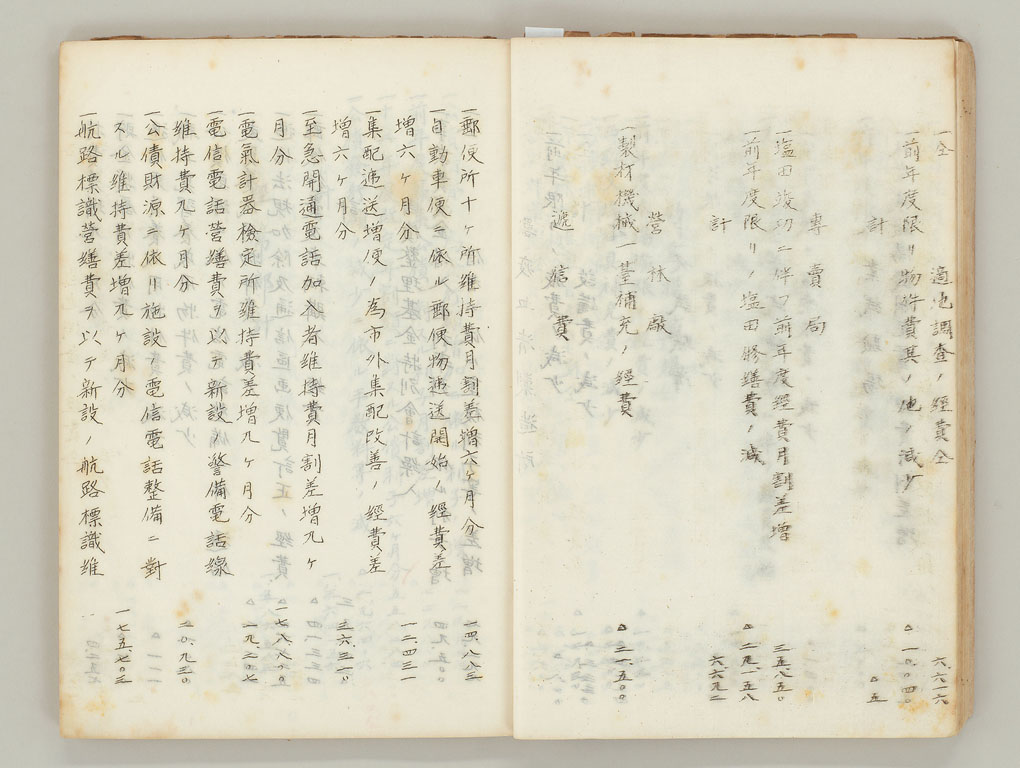 一仝 適地調査ノ經費仝 六、六一六
一前年度限リ物件費其ノ他ノ減少 △一〇、〇四〇
計 △五
專賣局
一塩田竣功ニ伴フ前年度經費月割差增 三五、八五〇
一前年度限リノ塩田修繕費ノ減 △二九、一五八
計 六六九二
營林廠
一製材機械一基補充ノ經費 △三一、五〇〇
遞信費
一郵便所十ヶ所維持費月割差增六ヶ月分 一四、八八三
一自動車便ニ依ル郵便物遞送開始ノ經費差
增六ヶ月分 一二、四三一
一集配遞送增便ノ為市外集配改善ノ經費差
增六ヶ月分 三六、三一〇
一至急開通電話加入者維持費月割差增九ヶ
月分 一七八八八〇
一電氣計器檢定所維持費差增九ヶ月分 一九、二〇七
一電信電話營繕費ヲ以テ新設ノ警備電話線
維持費九ヶ月分 二〇、九三〇
一公債財源ニ依リ施設ノ電信電話整備ニ對
スル維持費差增九ヶ月分 一七五、七〇三
一航路標識營繕費ヲ以テ新設ノ航路標識維